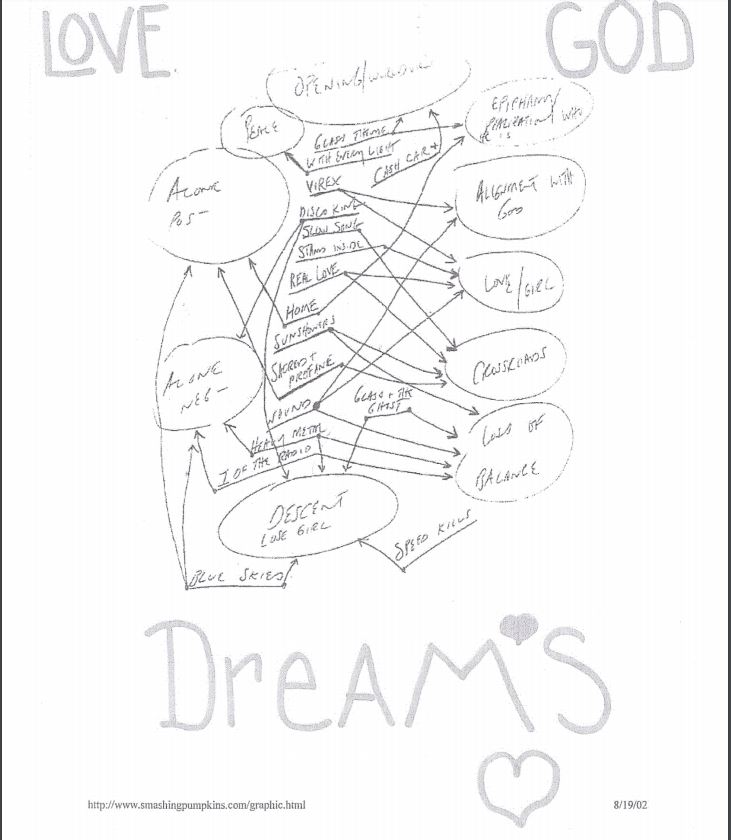 LOVE
GOD
OPENING/
PEACE
GLASS THEME
EPIPHANY/
REALIZATION WHO
HE IS
WITH EVERY LIGHT
CASH CAR+
VIREX
ALONE
POS-
DISCO KING
SLOW SONG
STAND INSIDE
REAL LOVE
ALIGNMENT WITH
GOD
LOVE/GIRL
HOME
SUNSHOWERS
SACRED +
PROFANE
CROSSROADS
ALONE
NEG-
WOUND
GLASS + THE
GHOST
HEAVY METAL
I OF THE RADIO
LOSS OF
BALANCE
DESCENT
LOSE GIRL
SPEED KILLS
BLUE SKIES
DreAM'S
http://www.smashingpumpkins.com/graphic.html
8/19/02